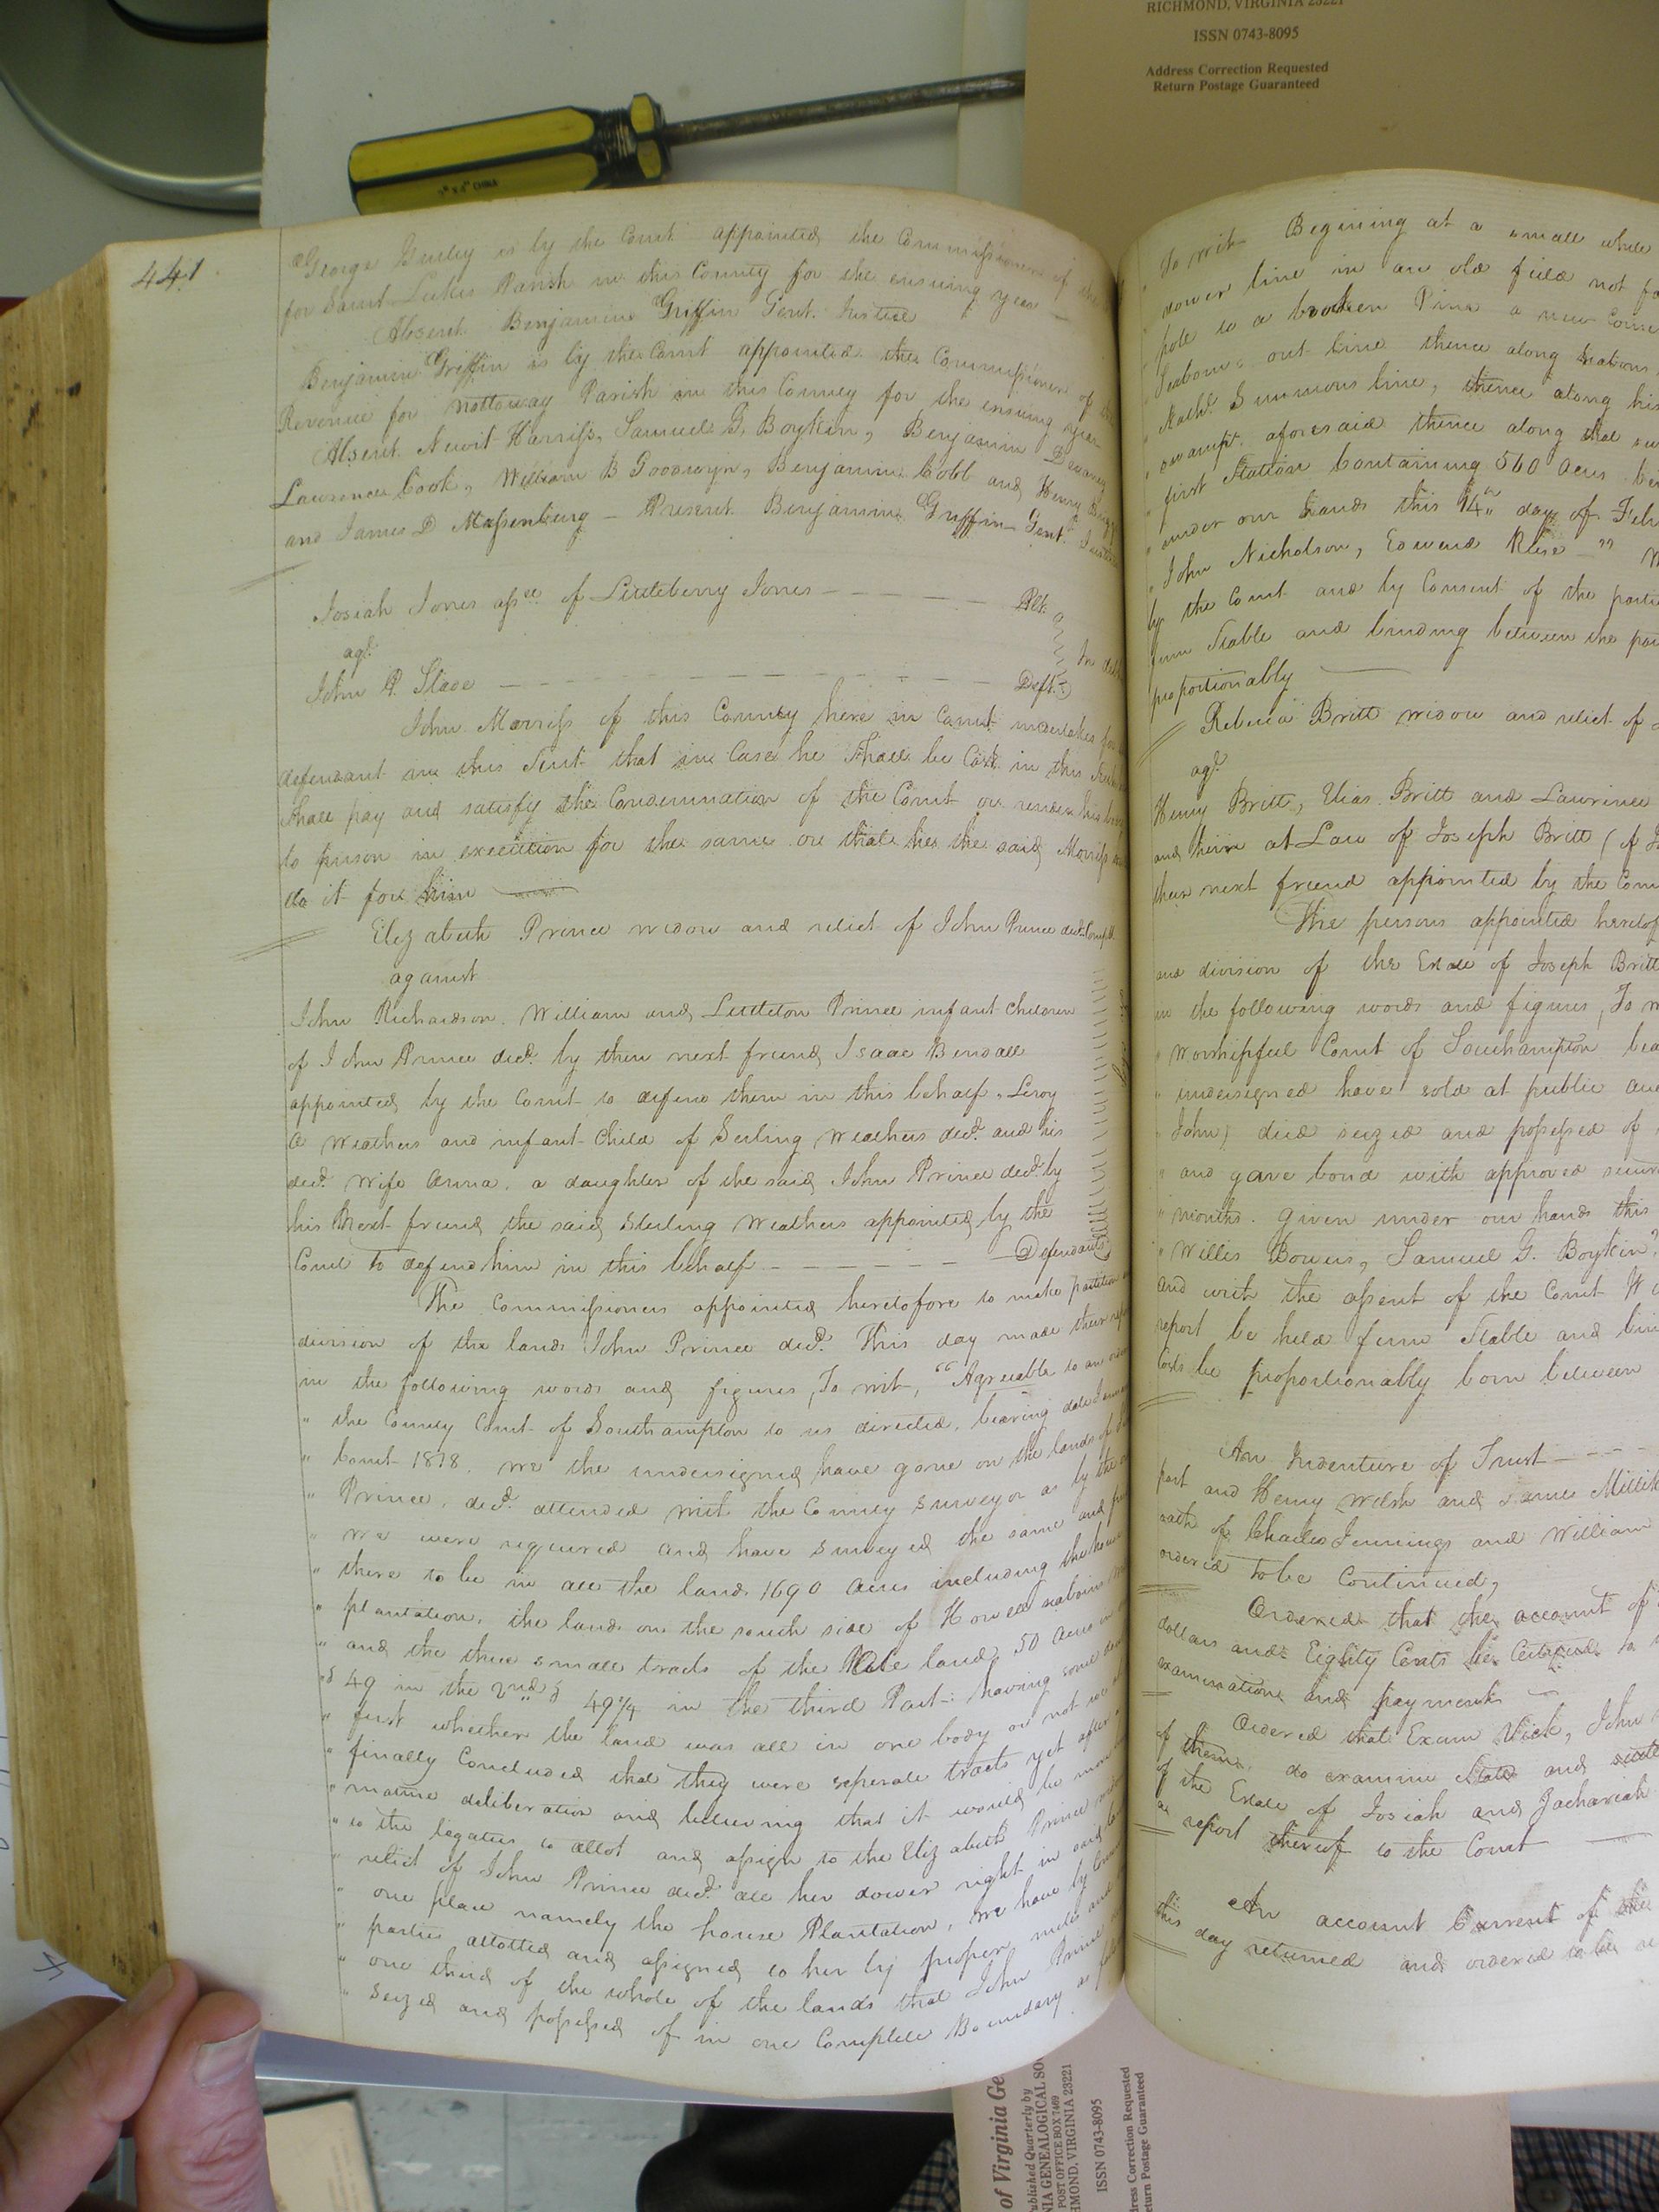 RICHMOND, VIRGINIA 23221
ISSN 0743-8095
Address Correction Requested
Return Postage Guaranteed
441
George Gurley is by the Court appointed the Commissioner of the
for Saint Lukes Parish in this County for the ensuing year —
Absent Benjamin Griffin Gent. Justice
Benjamin Griffin is by the Court appointed the Commissioner of the
Revenue for Nottoway Parish in this County for the ensuing year
Absent Newit Harriss, Samuel G. Boykin, Benjamin Devany
Lawrence Cook, William B Goodwyn, Benjamin Cobb and Henry
and James D Massenburg — Present Benjamin Griffin Gent.
Josiah Jones assee. of Littleberry Jones — — — — — Plt.
agt.
John P. Slade — — — — — — — — — Deft.
John Morriss of this County here in Court undertakes for
defendant in this Suit that in Case he Shall be Cast in this
Shall pay and satisfy the Condemnation of the Court or render his
to prison in execution for the same or that he the said Morriss
do it for him
Elizabeth Prince widow and relict of John Prince decd. Complt.
against
John Richardson, William and Littleton Prince infant Children
of John Prince decd. by their next friend Isaac Bendall
appointed by the Court to defend them in this behalf, Leroy
a Weathers and infant Child of Serling Weathers decd. and his
decd. wife Anna, a daughter of the said John Prince decd. by
his Next friend the said Sterling Weathers appointed by the
Court to defend him in this behalf — — — — — Defendants
The Commissioners appointed heretofore to make partition
division of the lands John Prince decd. This day made their
in the following words and figures, To wit, "Agreeable to an
" the County Court of Southampton to us directed, bearing date
" Court 1818, we the undersigned have gone on the lands of
" Prince, decd. attended with the County Surveyor as by the
" we were required and have surveyed the same and
" there to be in all the land 1690 acres including the
" plantation, the land on the south side of Howell
" and the three small tracts of the Pole land, 50 acres in
"& 49 in the 2nd & 49¼ in the third Part: having some
" first whether the land was all in one body or not we
" finally Concluded that they were seperate tracts yet after
" mature deliberation and believing that it would be more
" to the legatees to allot and assign to the Elizabeth Prince
" relict of John Prince decd. all her dower right in said
" one place namely the house Plantation, We have by
" parties allotted and assigned to her by proper metes and
" one third of the whole of the lands that John Prince
" Seized and possessed of in one Complete Boundary as
To wit Begining at a small white
" dower line in an old field not
" pole to a broken Pine a new
out line thence along
Summons line, thence along his
aforesaid thence along that
" first Station Containing 560 Acres
" under our hands this 14th day of
" John Nicholson, Edward Rese —"
by the Court and by Consent of the
firm Stable and binding between the
proportionably
Rebecca Britt widow and relict of
agt.
Henry Britt, Elias Britt and Lawrence
and heirs at Law of Joseph Britt (of
their next friend appointed by the
The persons appointed
and division of the Estate of Joseph Britt
in the following words and figures, To
" Worshipful Court of Southampton
" undersigned have sold at public
" John) died seized and possessed of
" and gave bond with approved
" months. Given under our hands this
" Willis Bowers, Samuel G. Boykin"
and with the assent of the Court
report be held firm Stable and
Costs be proportionably born between
An Indenture of Trust — — —
part and Henry Welsh and James
oath of Charles Jennings and William
ordered to be Continued,
Ordered that the account of
dollars and Eighty Cents be Certified to
examination and payments
Ordered that Exum Vick, John
of them, do examine State and
of the Estate of Josiah and Zachariah
report thereof to the Court
An account Current of the
this day returned and ordered to be
of Virginia Ge
ublished Quarterly by
NIA GENEALOGICAL SO
POST OFFICE BOX 7469
HMOND, VIRGINIA 23221
ISSN 0743-8095
dress Correction Requested
eturn Postage Guaranteed